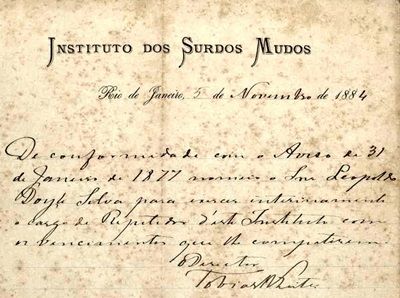 INSTITUTO DOS SURDOS MUDOS
Rio de Janeiro, 5 de Novembro de 1884
De conformidade com o Aviso de 31
de Janeiro de 1877 nomeio o Snr Leopoldo
Doyle Silva para exercer interinamente
o cargo de Repetidor d'este Instituto com
os vencimentos que lhe competirem
O Director
Tobias Leite